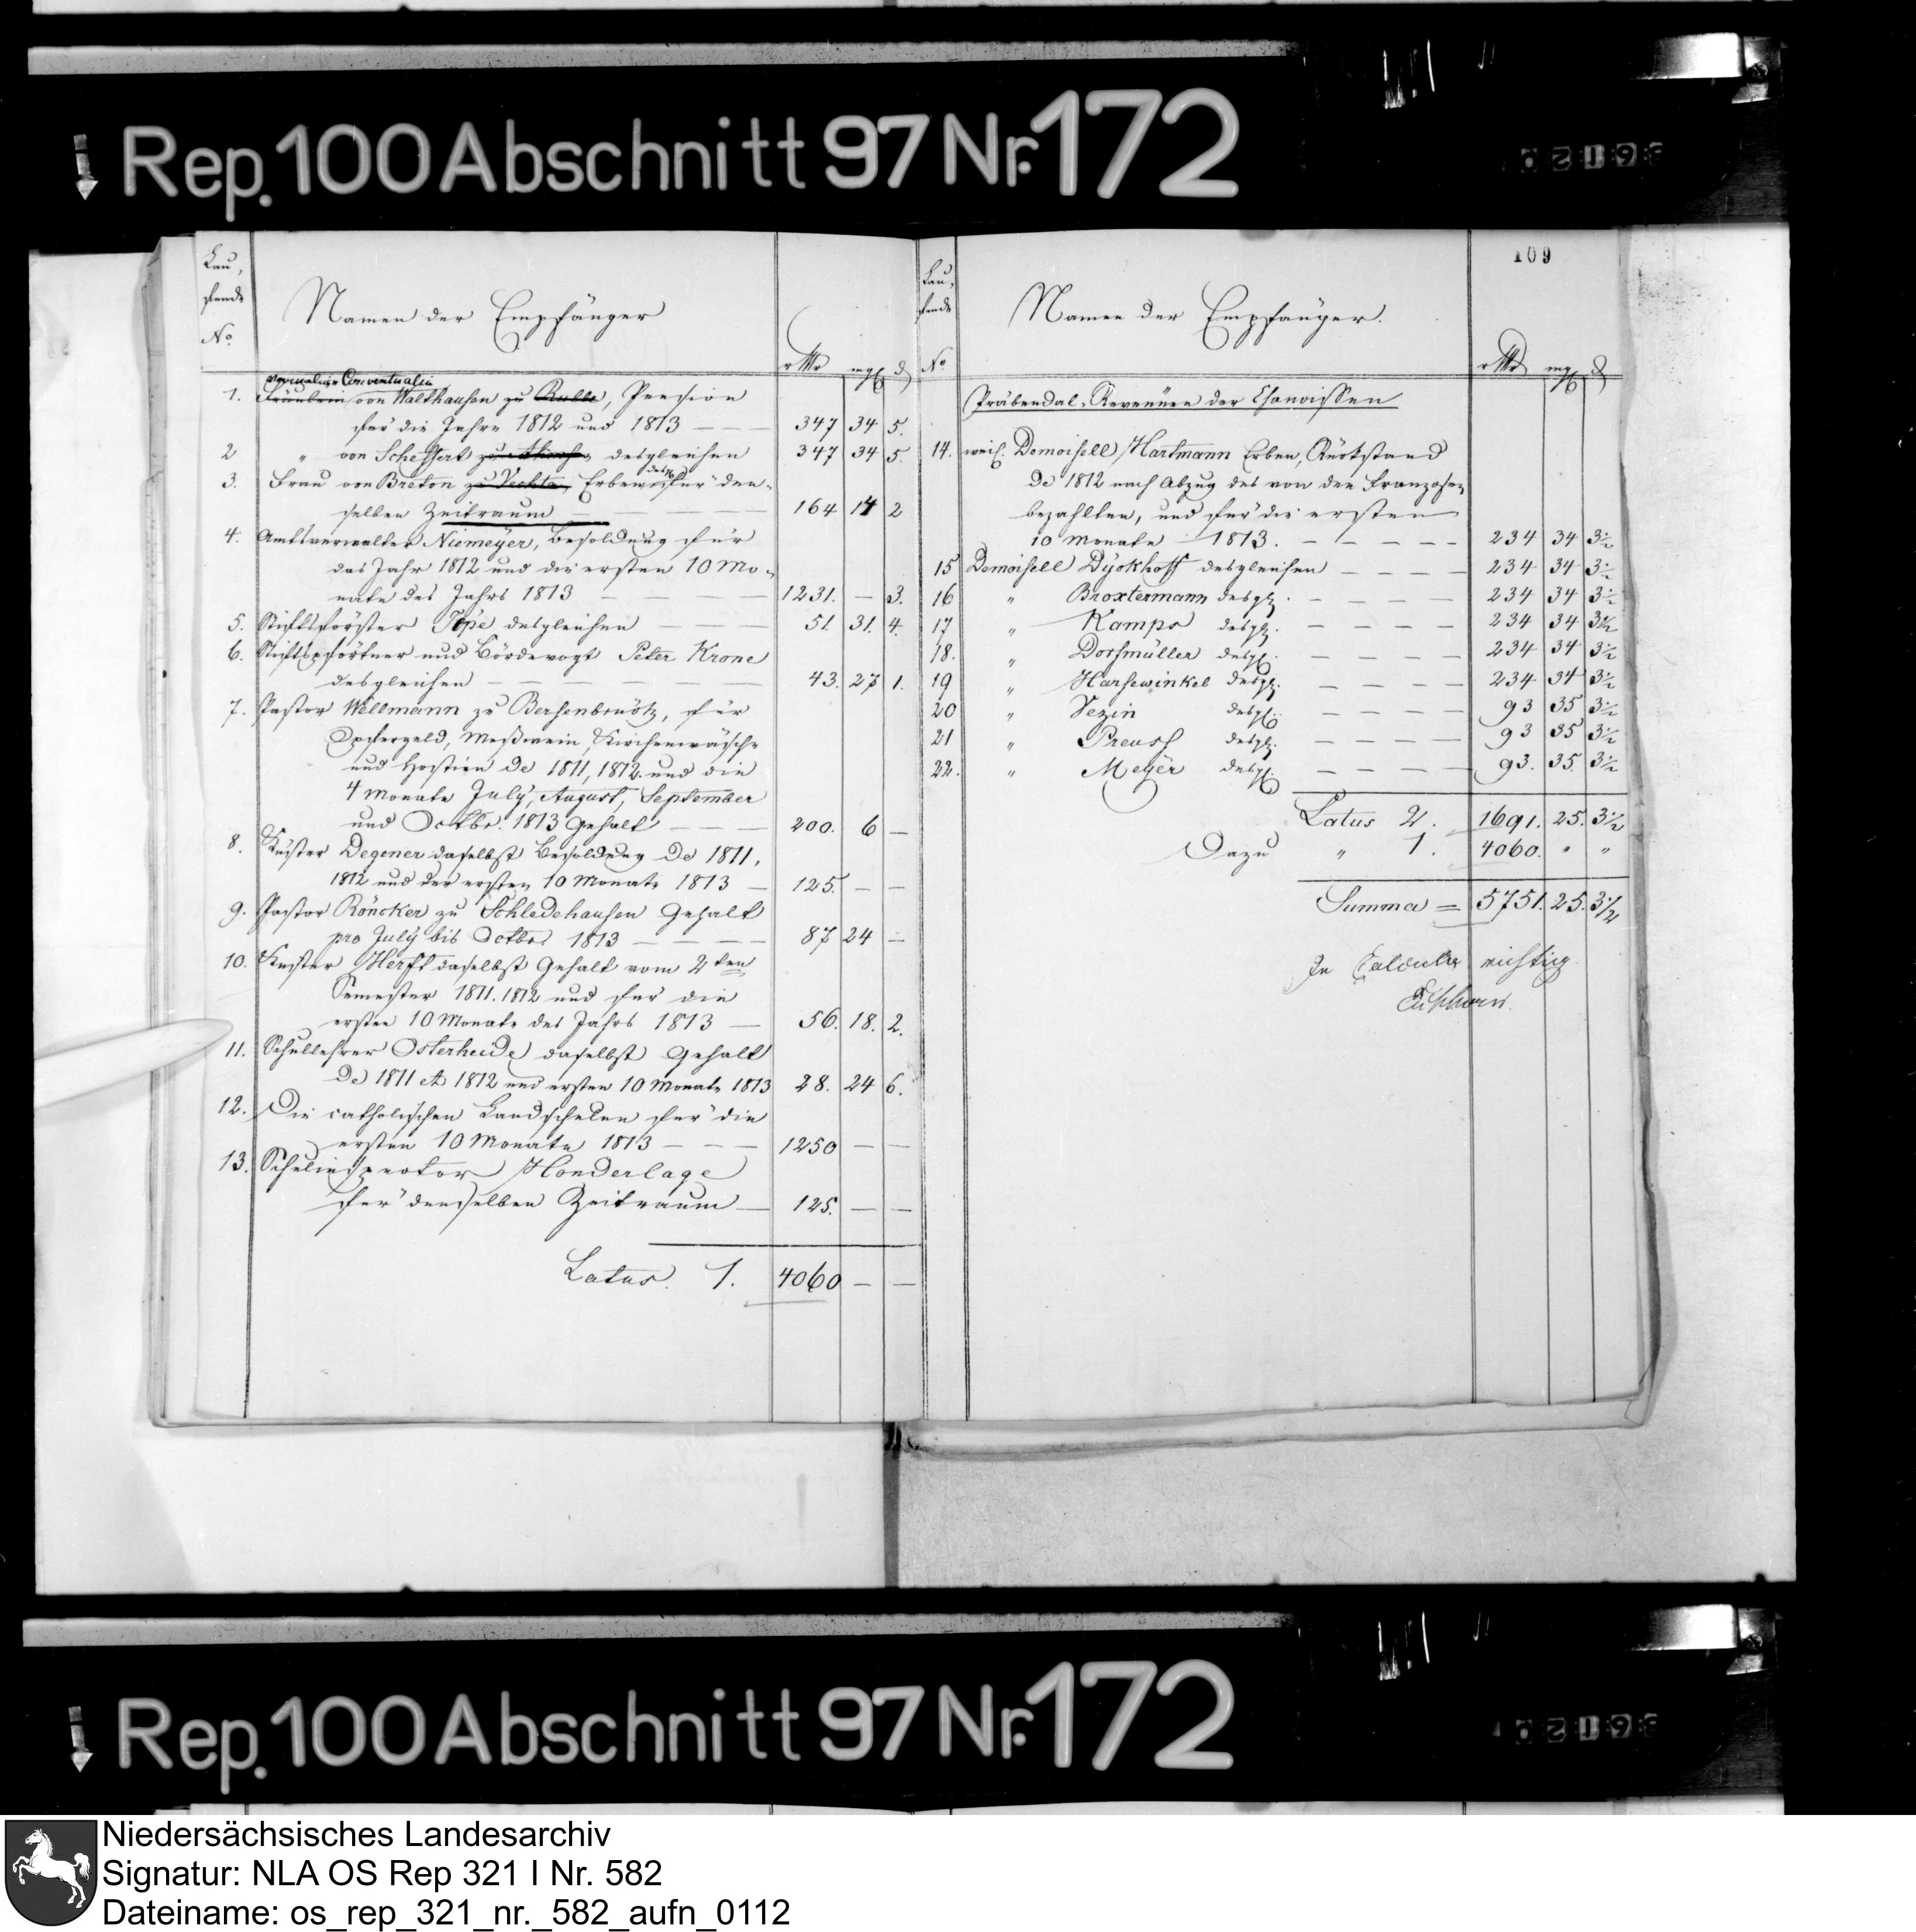 Rep. 100 Abschnitt 97 Nr. 172
Lau,
fende
No.
Namen der Empfänger
rthlr mgl d
1. vormalige Conventualin
Fräulein von Walthausen zu Rulle, Pension
für die Jahre 1812 und 1813 — — 347 34 5.
2 " von Scheffert desgleichen 347 34 5.
3. Frau von Breton zu Vechta, Erben desgl. für den-
selben Zeitraum — — — 164 14 2
4. Amtsverwalter Niemeyer, Besoldung für
das Jahr 1812 und die ersten 10 Mo-
nate des Jahrs 1813 — — — 1231. — 3.
5. Stiftsförster Töpe desgleichen — — 51. 31. 4.
6. Stiftspförtner und Bördevogt Peter Krone
desgleichen — — — — — 43. 27 1.
7. Pastor Wellmann zu Bersenbrück, für
Opfergeld, Meßwein, Kirchenwäsche
und Hostien de 1811, 1812. und die
4 Monate July, August, September
und Octbr. 1813 Gehalt — — — 200. 6 —
8. Küster Degener daselbst Besoldung de 1811,
1812 und der ersten 10 Monate 1813 — 125. — —
9. Pastor Röncker zu Schledehausen Gehalt
pro July bis Octbr 1813 — — — — 87 24 —
10. Küster Herft daselbst Gehalt vom 2ten
Semester 1811. 1812 und für die
ersten 10 Monate des Jahrs 1813 — 56. 18. 2.
11. Schullehrer Osterheide daselbst Gehalt
de 1811 et 1812 und ersten 10 Monate 1813 28. 24 6.
12. Die catholischen Landschulen für die
ersten 10 Monate 1813 — — — 1250 — —
13. Schulinspector Honderlage
für denselben Zeitraum — 125. — —
Latus. 1. 4060 — —
109
Lau,
fende
No
Namen der Empfänger.
rthlr mgl d
Präbendal-Revenüen der Chanoissen
14. weil. Demoisell Hartmann Erben, Rückstand
de 1812 nach Abzug des von den Franzosen
bezahlten, und für die ersten
10 Monate 1813. — — — — — 234 34 3½
15 Demoisell Dyckhoff desgleichen — — — — 234 34 3½
16 " Broxtermann desgl. — — — — 234 34 3½
17 " Kamps desgl. — — — — 234 34 3½
18. " Dorfmüller desgl. — — — — 234 34 3½
19 " Harsewinkel desgl. — — — — 234 34 3½
20 " Vezin desgl. — — — — 93 35 3½
21 " Preuss desgl. — — — — 93 35 3½
22. " Meyer desgl. — — — — 93. 35. 3½
Latus 2. 1691. 25. 3½
Dazu " 1. 4060. " "
Summa = 5751. 25. 3½
In Calculo richtig
Rep. 100 Abschnitt 97 Nr. 172
Niedersächsisches Landesarchiv
Signatur: NLA OS Rep 321 I Nr. 582
Dateiname: os_rep_321_nr._582_aufn_0112